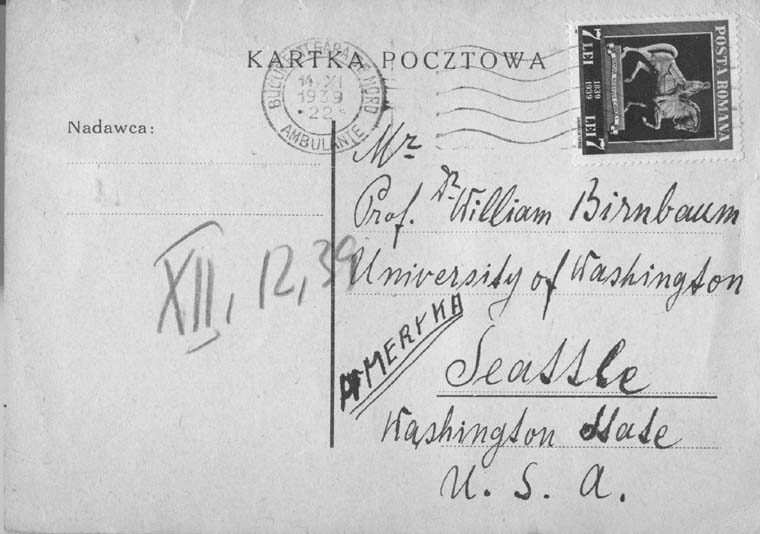 KARTKA POCZTOWA
BUCUREȘTI GARA DE NORD
14 XI
1939
22
AMBULANTE
POSTA ROMANA
1839
1939
7 LEI
LEI 7
Nadawca:
Mr
Prof. Dr William Birnbaum
University of Washington
XII, 12, 39
AMERYKA
Seattle
Washington State
U. S. A.